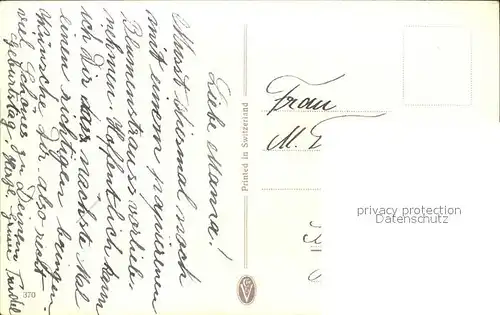 Liebe Mama!
Musst diesmal noch
mit einem papierenen
Blumenstrauss vorlieb-
nehmen. Hoffentlich kann
ich Dir das nächste Mal
einen richtigen bringen.
Wünsche Dir also recht
viel Schönes zu Deinem
Geburtstag. Herzl.
Grüsse Trudel
370
Printed in Switzerland
Frau
M.
privacy protection
Datenschutz